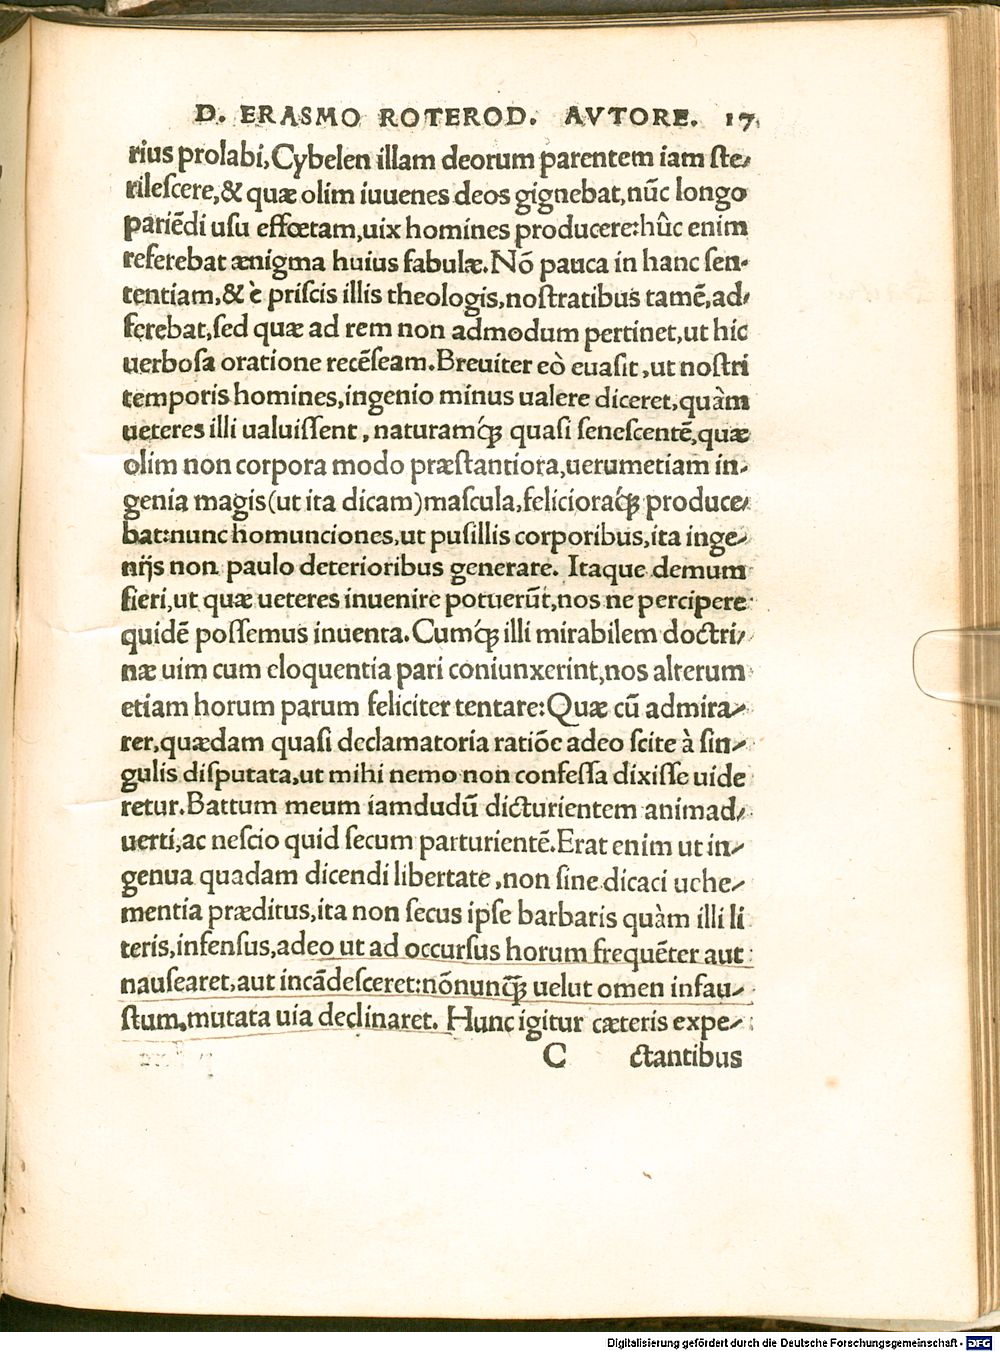 D. ERASMO ROTEROD. AVTORE. 17
rius prolabi, Cybelen illam deorum parentem iam ſte⸗
rileſcere, & quæ olim iuuenes deos gignebat, nũc longo
pariẽdi uſu effœtam, uix homines producere: hûc enim
referebat ænigma huius fabulæ. Nõ pauca in hanc ſen⸗
tentiam, & è priſcis illis theologis, noſtratibus tamẽ, ad⸗
ferebat, ſed quæ ad rem non admodum pertinet, ut hic
uerboſa oratione recẽſeam. Breuiter eò euaſit, ut noſtri
temporis homines, ingenio minus ualere diceret, quàm
ueteres illi ualuiſſent, naturamq́ꝫ quaſi ſeneſcentẽ, quæ
olim non corpora modo præſtantiora, uerumetiam in⸗
genia magis (ut ita dicam) maſcula, felicioraq́ꝫ produce⸗
bat: nunc homunciones, ut puſillis corporibus, ita inge⸗
nijs non paulo deterioribus generare. Itaque demum
fieri, ut quæ ueteres inuenire potuerũt, nos ne percipere
quidẽ poſſemus inuenta. Cumq́ꝫ illi mirabilem doctri⸗
næ uim cum eloquentia pari coniunxerint, nos alterum
etiam horum parum feliciter tentare: Quæ cũ admira⸗
rer, quædam quaſi declamatoria ratiõe adeo ſcite à ſin⸗
gulis diſputata, ut mihi nemo non confeſſa dixiſſe uide
retur. Battum meum iamdudũ dicturientem animad⸗
uerti, ac neſcio quid ſecum parturientẽ. Erat enim ut in⸗
genua quadam dicendi libertate, non ſine dicaci uehe⸗
mentia præditus, ita non ſecus ipſe barbaris quàm illi li
teris, infenſus, adeo ut ad occurſus horum frequẽter aut
nauſearet, aut incãdeſceret: nõnunq̃ꝫ uelut omen infau⸗
ſtum, mutata uia declinaret. Hunc igitur cæteris expe⸗
C ctantibus
Digitalisierung gefördert durch die Deutsche Forschungsgemeinschaft - DFG